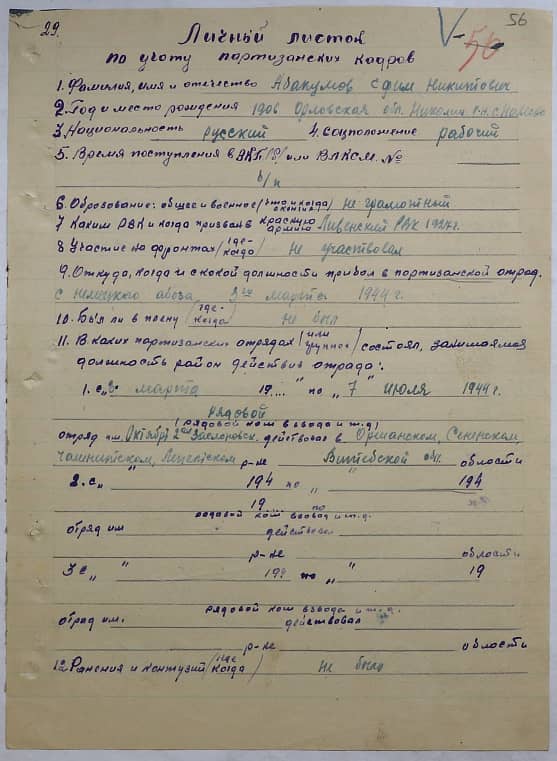 29.
56
56
Личный листок
по учету партизанских кадров
1. Фамилия, имя и отчество Абакумов Ефим Никитович
2. Год и место рождения 1906 Орловская обл. Никольск. р-н. с.
3. Национальность русский 4. Соцположение рабочий
5. Время поступления в ВКП(б) или ВЛКСМ. №
б/п
6. Образование: общее и военное (что и когда окончил) не грамотный
7 Каким РВК и когда призван в Красную армию Ливенский РВК
8 Участие на фронтах (где- когда) не участвовал
9. Откуда, когда и с какой должности прибыл в партизанский отряд.
с немецкого обоза 3го марта 1944 г.
10. Был ли в плену (где- когда) не был
11. В каких партизанских отрядах (или группе) состоял, занимаемая
должность район действия отряда:
1. с„3 марта 19... " по „ 7 " июля 1944 г.
Рядовой
(рядовой ком взвода и т.д)
отряд им. Октября 2ой действовал в Оршанском, Сенненском,
Чашникском, Лепельском р-не Витебской обл. области
2. с„ " 194 по „ 194
19 по
рядовой ком взвода и т.д.
отряд им действовал
р-не области
3 с„ " 199 по „ " 19
рядовой ком взвода и т.д.
отряд им. действовал
р-не области
12 Ранения и контузии (где когда) не было